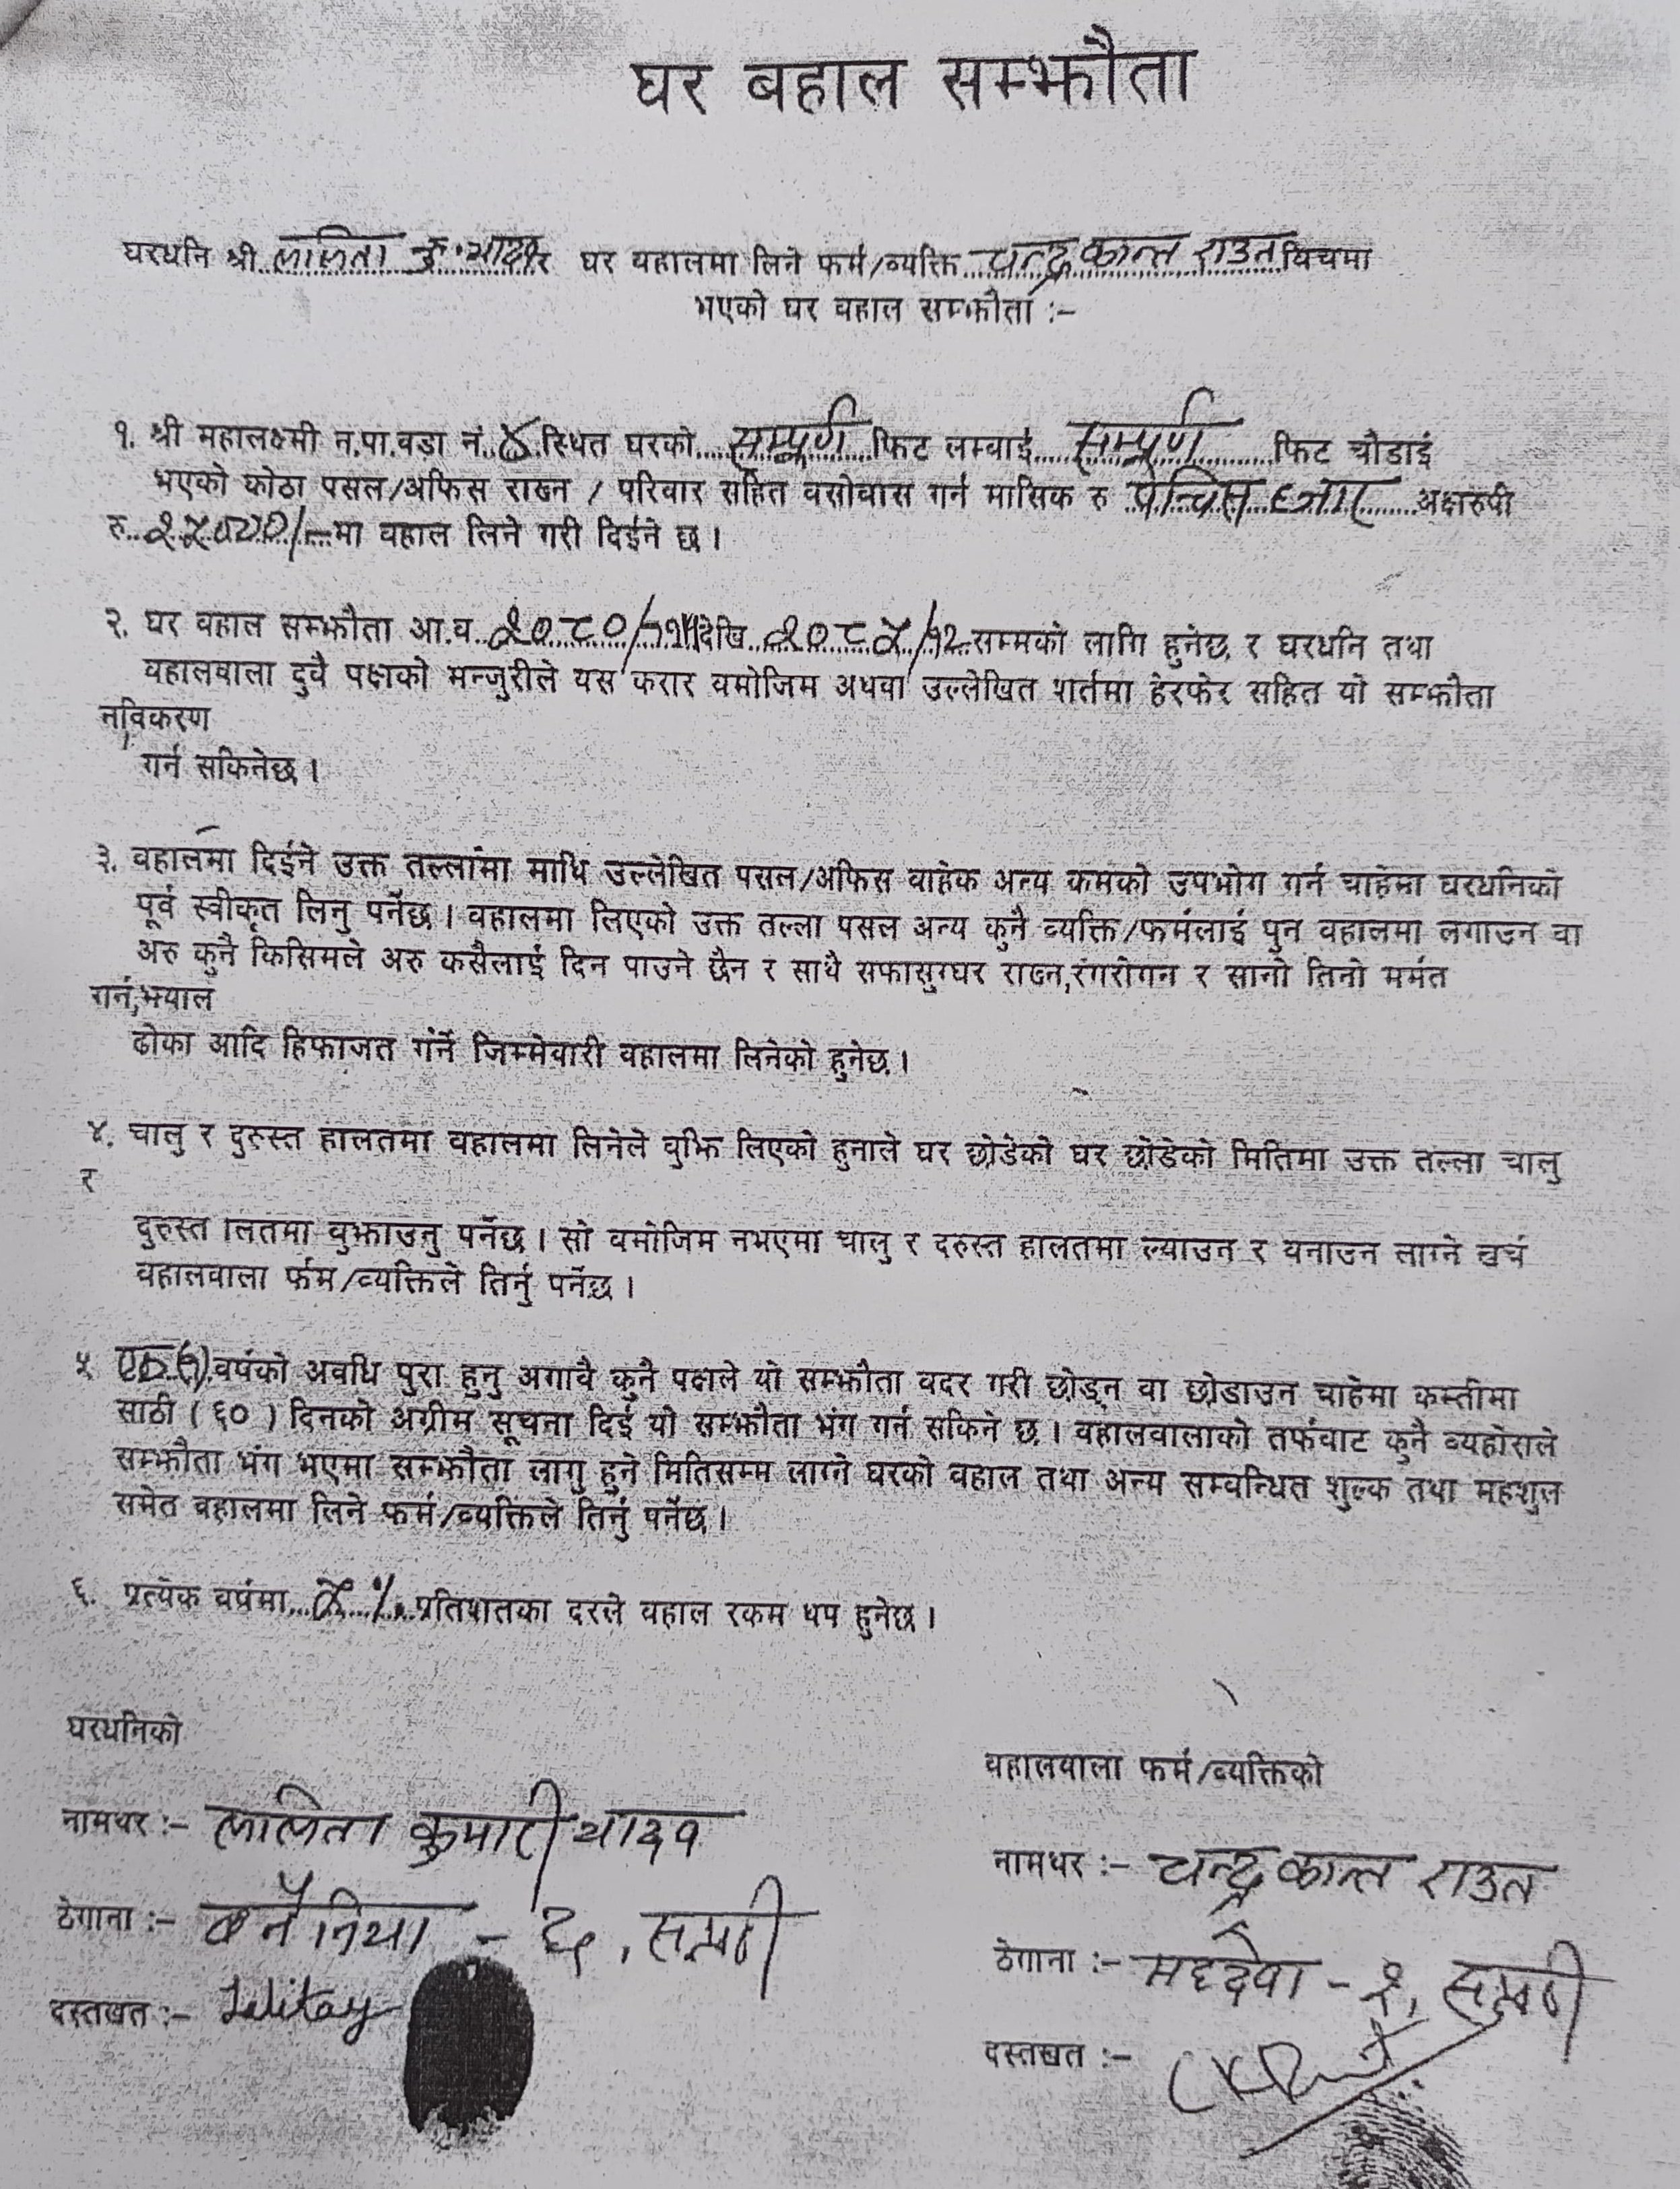 घर बहाल सम्झौता
घरधनि श्री ललिता कु. यादव र घर वहालमा लिने फर्म/व्यक्ति चन्द्रकान्त राउत विचमा
भएको घर वहाल सम्झौता :-
१. श्री महालक्ष्मी न.पा.वडा नं. स्थित घरको सम्पूर्ण फिट लम्वाई सम्पूर्ण फिट चौडाई
भएको कोठा पसल/अफिस राख्न / परिवार सहित वसोवास गर्न मासिक रु पच्चिस हजार अक्षरुपी
रु. २५०००/- मा वहाल लिने गरी दिईने छ ।
२. घर वहाल सम्झौता आ.व. २०८०/ देखि २०८५/१२ सम्मको लागि हुनेछ र घरधनि तथा
वहालवाला दुवै पक्षको मन्जुरीले यस करार वमोजिम अथवा उल्लेखित शर्तमा हेरफेर सहित यो सम्झौता
नविकरण
गर्न सकिनेछ ।
३. वहालमा दिईने उक्त तल्लामा माथि उल्लेखित पसल/अफिस वाहेक अन्य कमको उपभोग गर्न चाहेमा घरधनिको
पूर्व स्वीकृत लिनु पर्नेछ । वहालमा लिएको उक्त तल्ला पसल अन्य कुनै व्यक्ति/फर्मलाई पुन वहालमा लगाउन वा
अरु कुनै किसिमले अरु कसैलाई दिन पाउने छैन र साथै सफासुग्घर राख्न,रंगरोगन र सानो तिनो मर्मत
गर्न,झ्याल
ढोका आदि हिफाजत गर्ने जिम्मेवारी वहालमा लिनेको हुनेछ ।
४. चालु र दुरुस्त हालतमा वहालमा लिनेले वुझि लिएको हुनाले घर छोडेको घर छोडेको मितिमा उक्त तल्ला चालु
र
दुरुस्त ालतमा वुझाउनु पर्नेछ । सो वमोजिम नभएमा चालु र दरुस्त हालतमा ल्याउन र वनाउन लाग्ने खर्च
वहालवाला र्फम/व्यक्तिले तिर्नु पर्नेछ ।
५ एक (१) वर्षको अवधि पुरा हुनु अगावै कुनै पक्षले यो सम्झौता वदर गरी छोड्न वा छोडाउन चाहेमा कम्तीमा
साठी ( ६० ) दिनको अग्रीम सूचना दिई यो सम्झौता भंग गर्न सकिने छ । वहालवालाको तर्फवाट कुनै व्यहोराले
सम्झौता भंग भएमा सम्झौता लागु हुने मितिसम्म लाग्ने घरको वहाल तथा अन्य सम्वन्धित शुल्क तथा महशुल
समेत वहालमा लिने फर्म/व्यक्तिले तिर्नु पर्नेछ ।
६. प्रत्येक वर्षमा ५ %. प्रतिशतका दरले वहाल रकम थप हुनेछ ।
घरधनिको
वहालवाला फर्म/व्यक्तिको
नामथर :- ललिता कुमारी यादव
नामथर :- चन्द्रकान्त राउत
ठेगाना :- बनैनिया - ६, सप्तरी
ठेगाना :- महदेवा - २, सप्तरी
दस्तखत :- Lalitay
दस्तखत :-